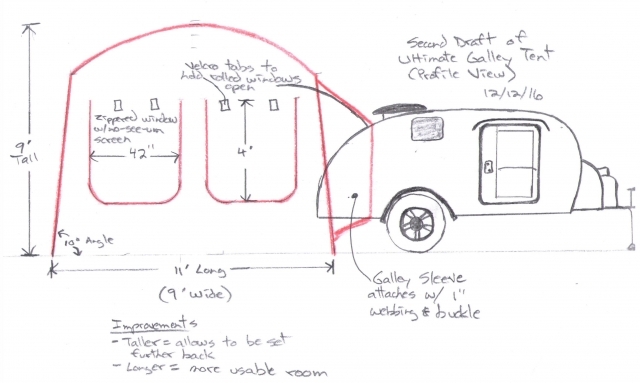 Second Draft of
Ultimate Galley Tent
(Profile View)
12/12/16
Velcro tabs to
hold rolled windows
open
zippered window
w/no-see-um
screen
42"
4'
9'
Tall
10° Angle
11' Long
(9' Wide)
Galley Sleeve
attaches w/ 1"
webbing & buckle
Improvements
- Taller = allows to be set
further back
- Longer = more usable room